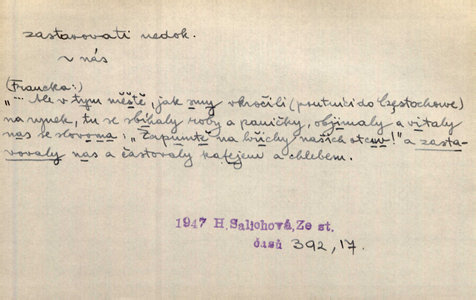 zastavovati nedok.
v nás
(Francka:)
"… Ale v tym městě, jak smy vkročili (poutníci do Częstochowe)
na rynek, tu se sbíhaly roby a paničky, objimaly a vitaly
nas se slovoma: „Zapumtě na hřichy našich otcuv!" a zasta-
vovaly nas a častovaly kafejem a chlebem.
1947 H. Salichová, Ze st.
časů 392, 17.